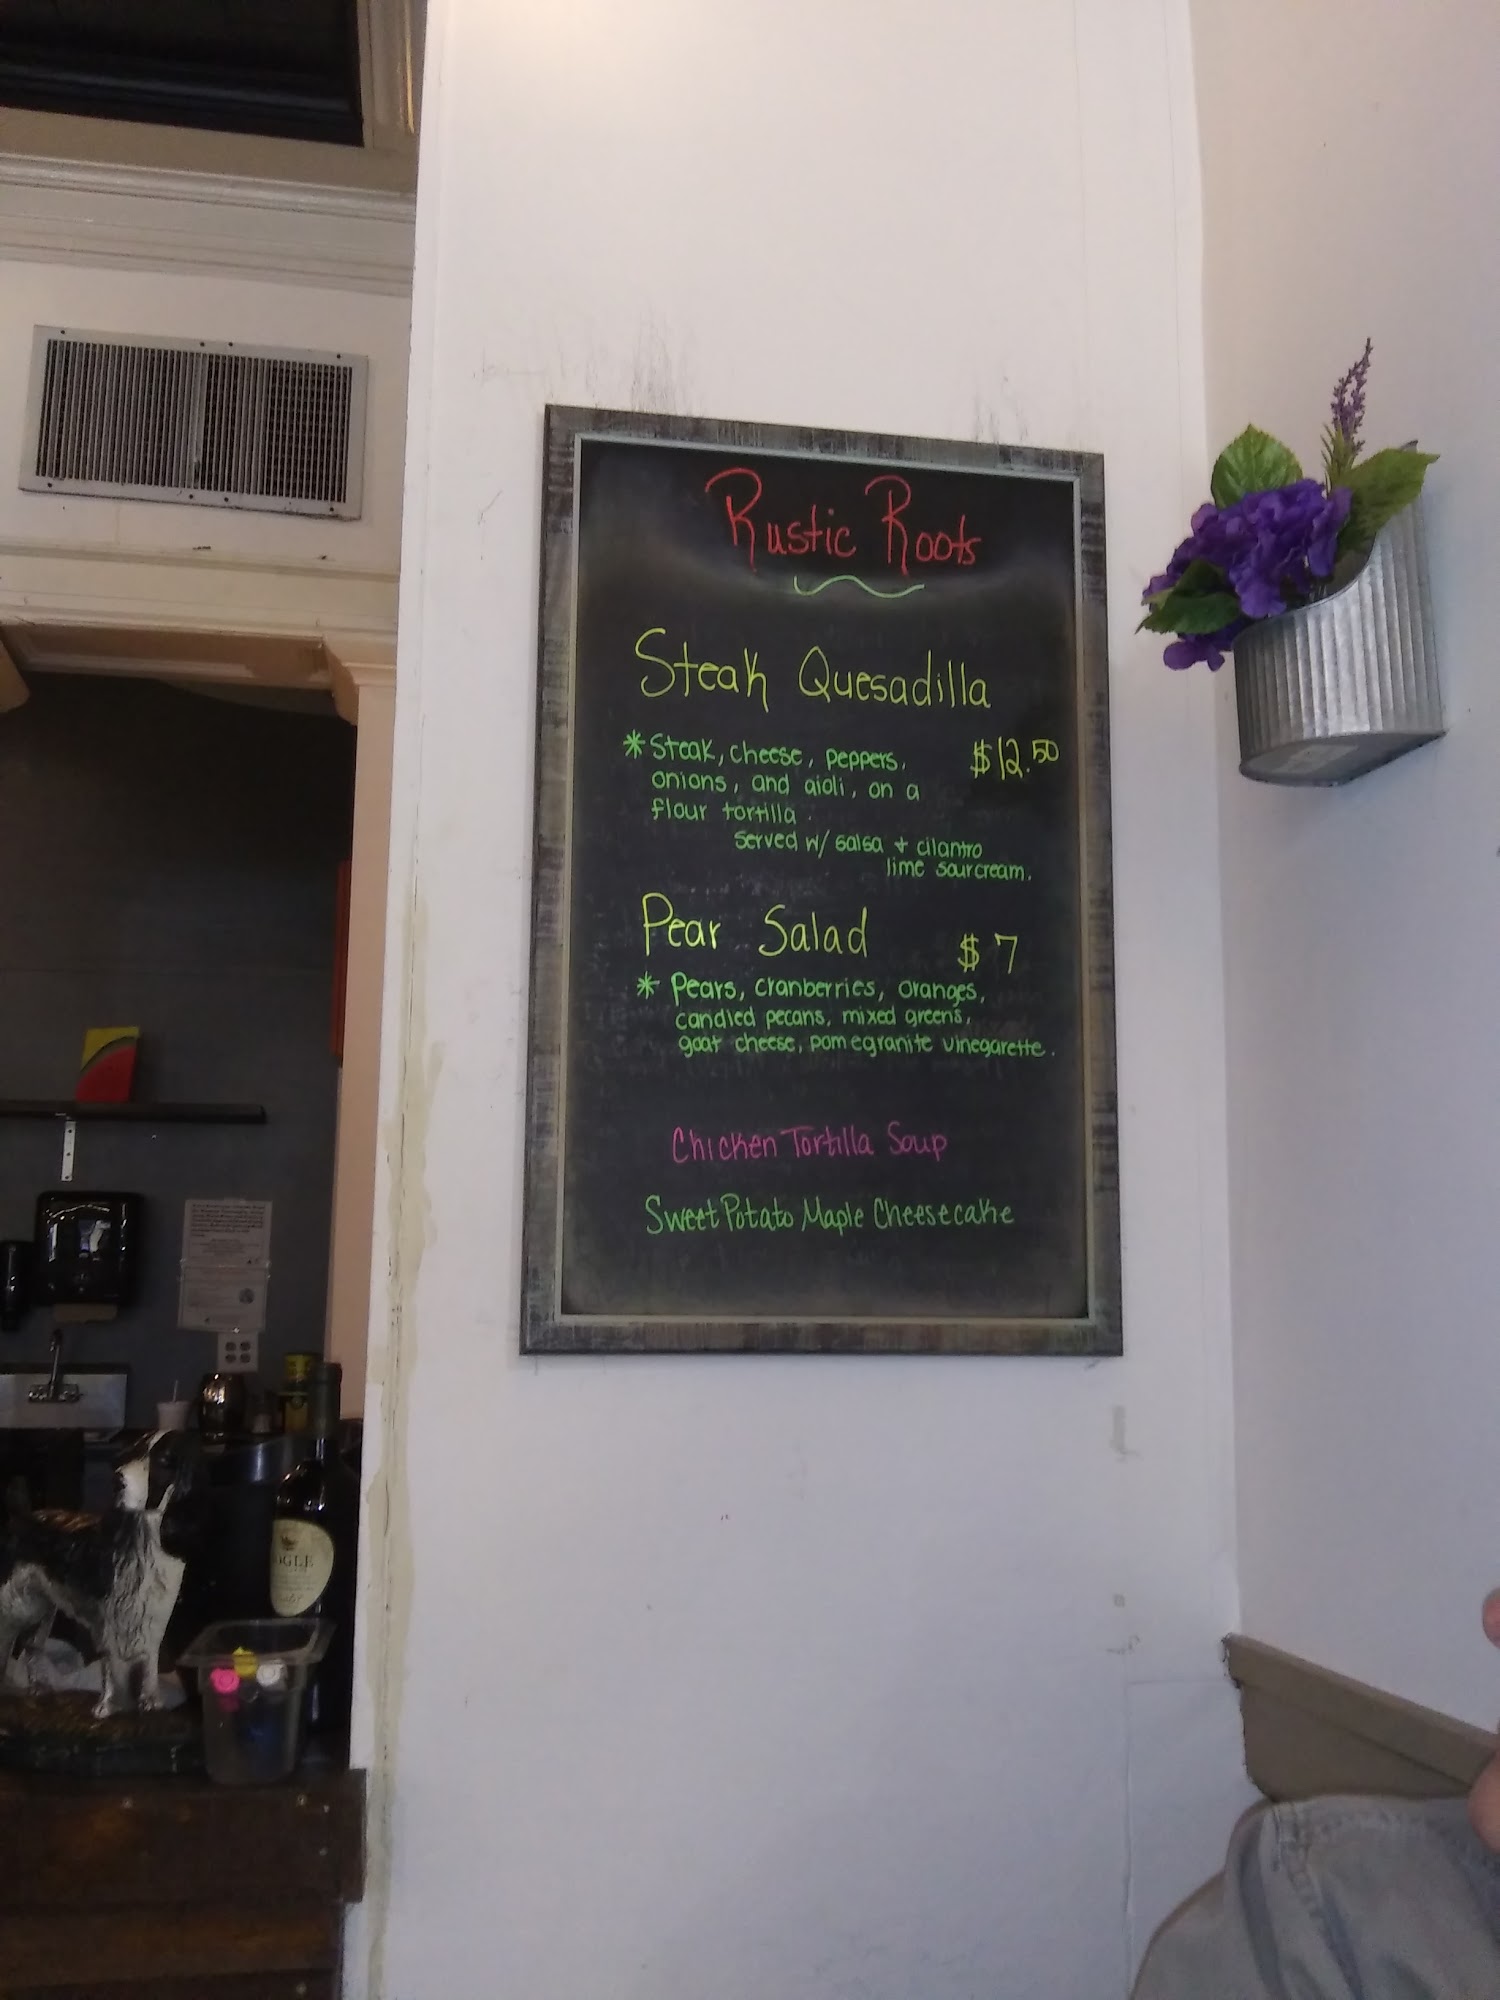 Rustic Roots
Steak Quesadilla
* Steak, cheese, peppers, $12.50
onions, and aioli, on a
flour tortilla.
Served w/ salsa + cilantro
lime sourcream.
Pear Salad $7
* Pears, cranberries, oranges,
candied pecans, mixed greens,
goat cheese, pomegranite vinegarette.
Chicken Tortilla Soup
Sweet Potato Maple Cheesecake